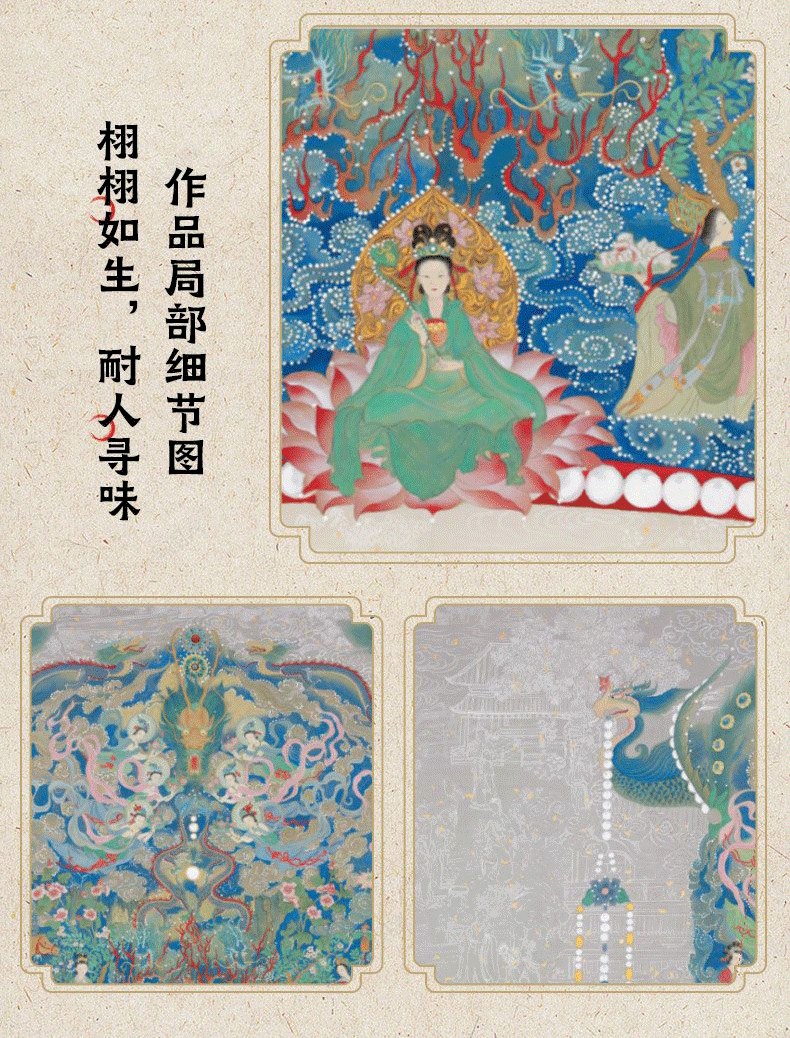 作品局部细节图
栩栩如生，耐人寻味